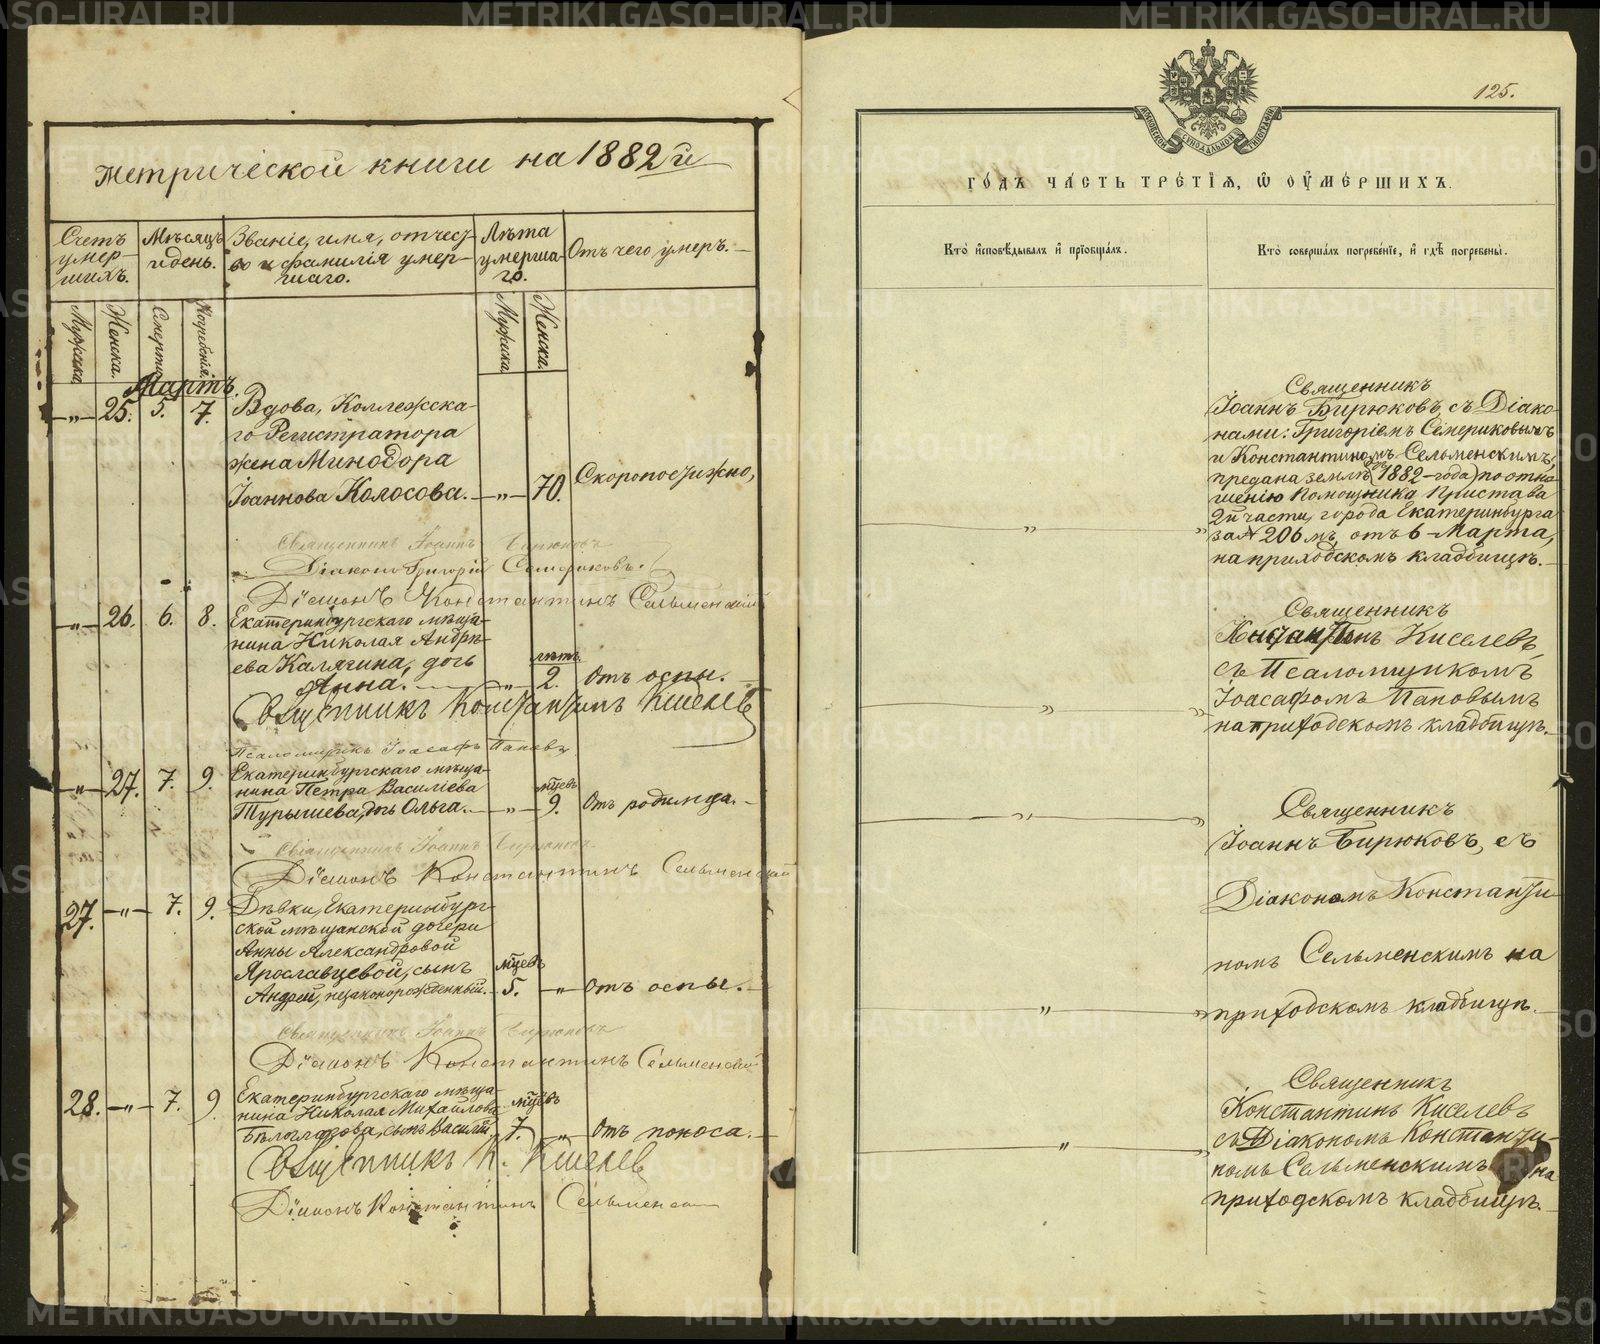 метрической книги на 1882й
Счетъ умер-
шихъ.
Мѣсяцъ
и день.
Званіе, имя, отчест-
во и фамилія умер-
шаго.
Лѣта
умерша-
го.
Отъ чего умеръ.
Мужска.
Женска.
Смерти.
Погребенія.
Мужска.
Женска.
Мартъ.
—„— 25. 5. 7.
Вдова, Коллежска-
го Регистратора
жена Минодора
Іоаннова Колосова. —„— 70. Скоропостижно,
Священникъ Іоаннъ Бирюковъ
Діаконъ Григорій Семериковъ.
Діаконъ Константинъ Сельменскій
—„— 26. 6. 8.
Екатеринбургскаго мѣща-
нина Николая Андрѣ-
ева Калягина, дочь лѣтъ.
Анна. — „ — 2. Отъ оспы.
Священникъ Константинъ Киселевъ
Псаломщикъ Іоасафъ Паповъ
—„— 27. 7. 9.
Екатеринбургскаго мѣща-
нина Петра Василіева мѣцевъ
Турышева, дочь Ольга. — „ — 9. Отъ родимца.
Священникъ Іоаннъ Бирюковъ
Діаконъ Константинъ Сельменскій
27. —„— 7. 9.
Дѣвки, Екатеринбург-
ской мѣщанской дочери
Анны Александровой
Ярославцевой, сынъ мѣцевъ
Андрей, незаконорожденный. 5. —„— Отъ оспы.
Священникъ Іоаннъ Бирюковъ
Діаконъ Константинъ Сельменскій
28. —„— 7. 9.
Екатеринбургскаго мѣща-
нина Николая Михайлова мѣцевъ
Бѣлоглазова, сынъ Василій, 7. „ Отъ поноса.
Священникъ К. Киселевъ
Діаконъ Константинъ Сельменск
125.
МОСКОВСКОЙ СѴНОДАЛЬНОЙ ТИПОГРАФІИ
го́дъ ча́сть тре́тїѧ, ѡ҆ ᲂу҆ме́ршихъ.
Кто̀ и҆сповѣ́дывалъ и҆ прїѡбща́лъ.
Кто̀ соверша́лъ погребе́нїе, и҆ гдѣ̀ погребены̀.
Священникъ
Іоаннъ Бирюковъ, съ Діако-
нами: Григоріемъ Семериковымъ
и Константиномъ Сельменскимъ,
предана землѣ (1882-года) по отно-
шенію Помощника Пристава
2й части, города Екатеринбурга
за № 206мъ, отъ 6 Марта,
на приходскомъ кладбищѣ.
Священникъ
Константинъ Киселевъ,
съ Псаломщикомъ
Іоасафомъ Паповымъ
на приходскомъ кладбищѣ.
Священникъ
Іоаннъ Бирюковъ, съ
Діакономъ Константи-
номъ Сельменскимъ на
приходскомъ кладбищѣ.
Священникъ
Константинъ Киселевъ
съ Діакономъ Константи-
номъ Сельменскимъ на
приходскомъ кладбищѣ.
METRIKI.GASO-URAL.RU